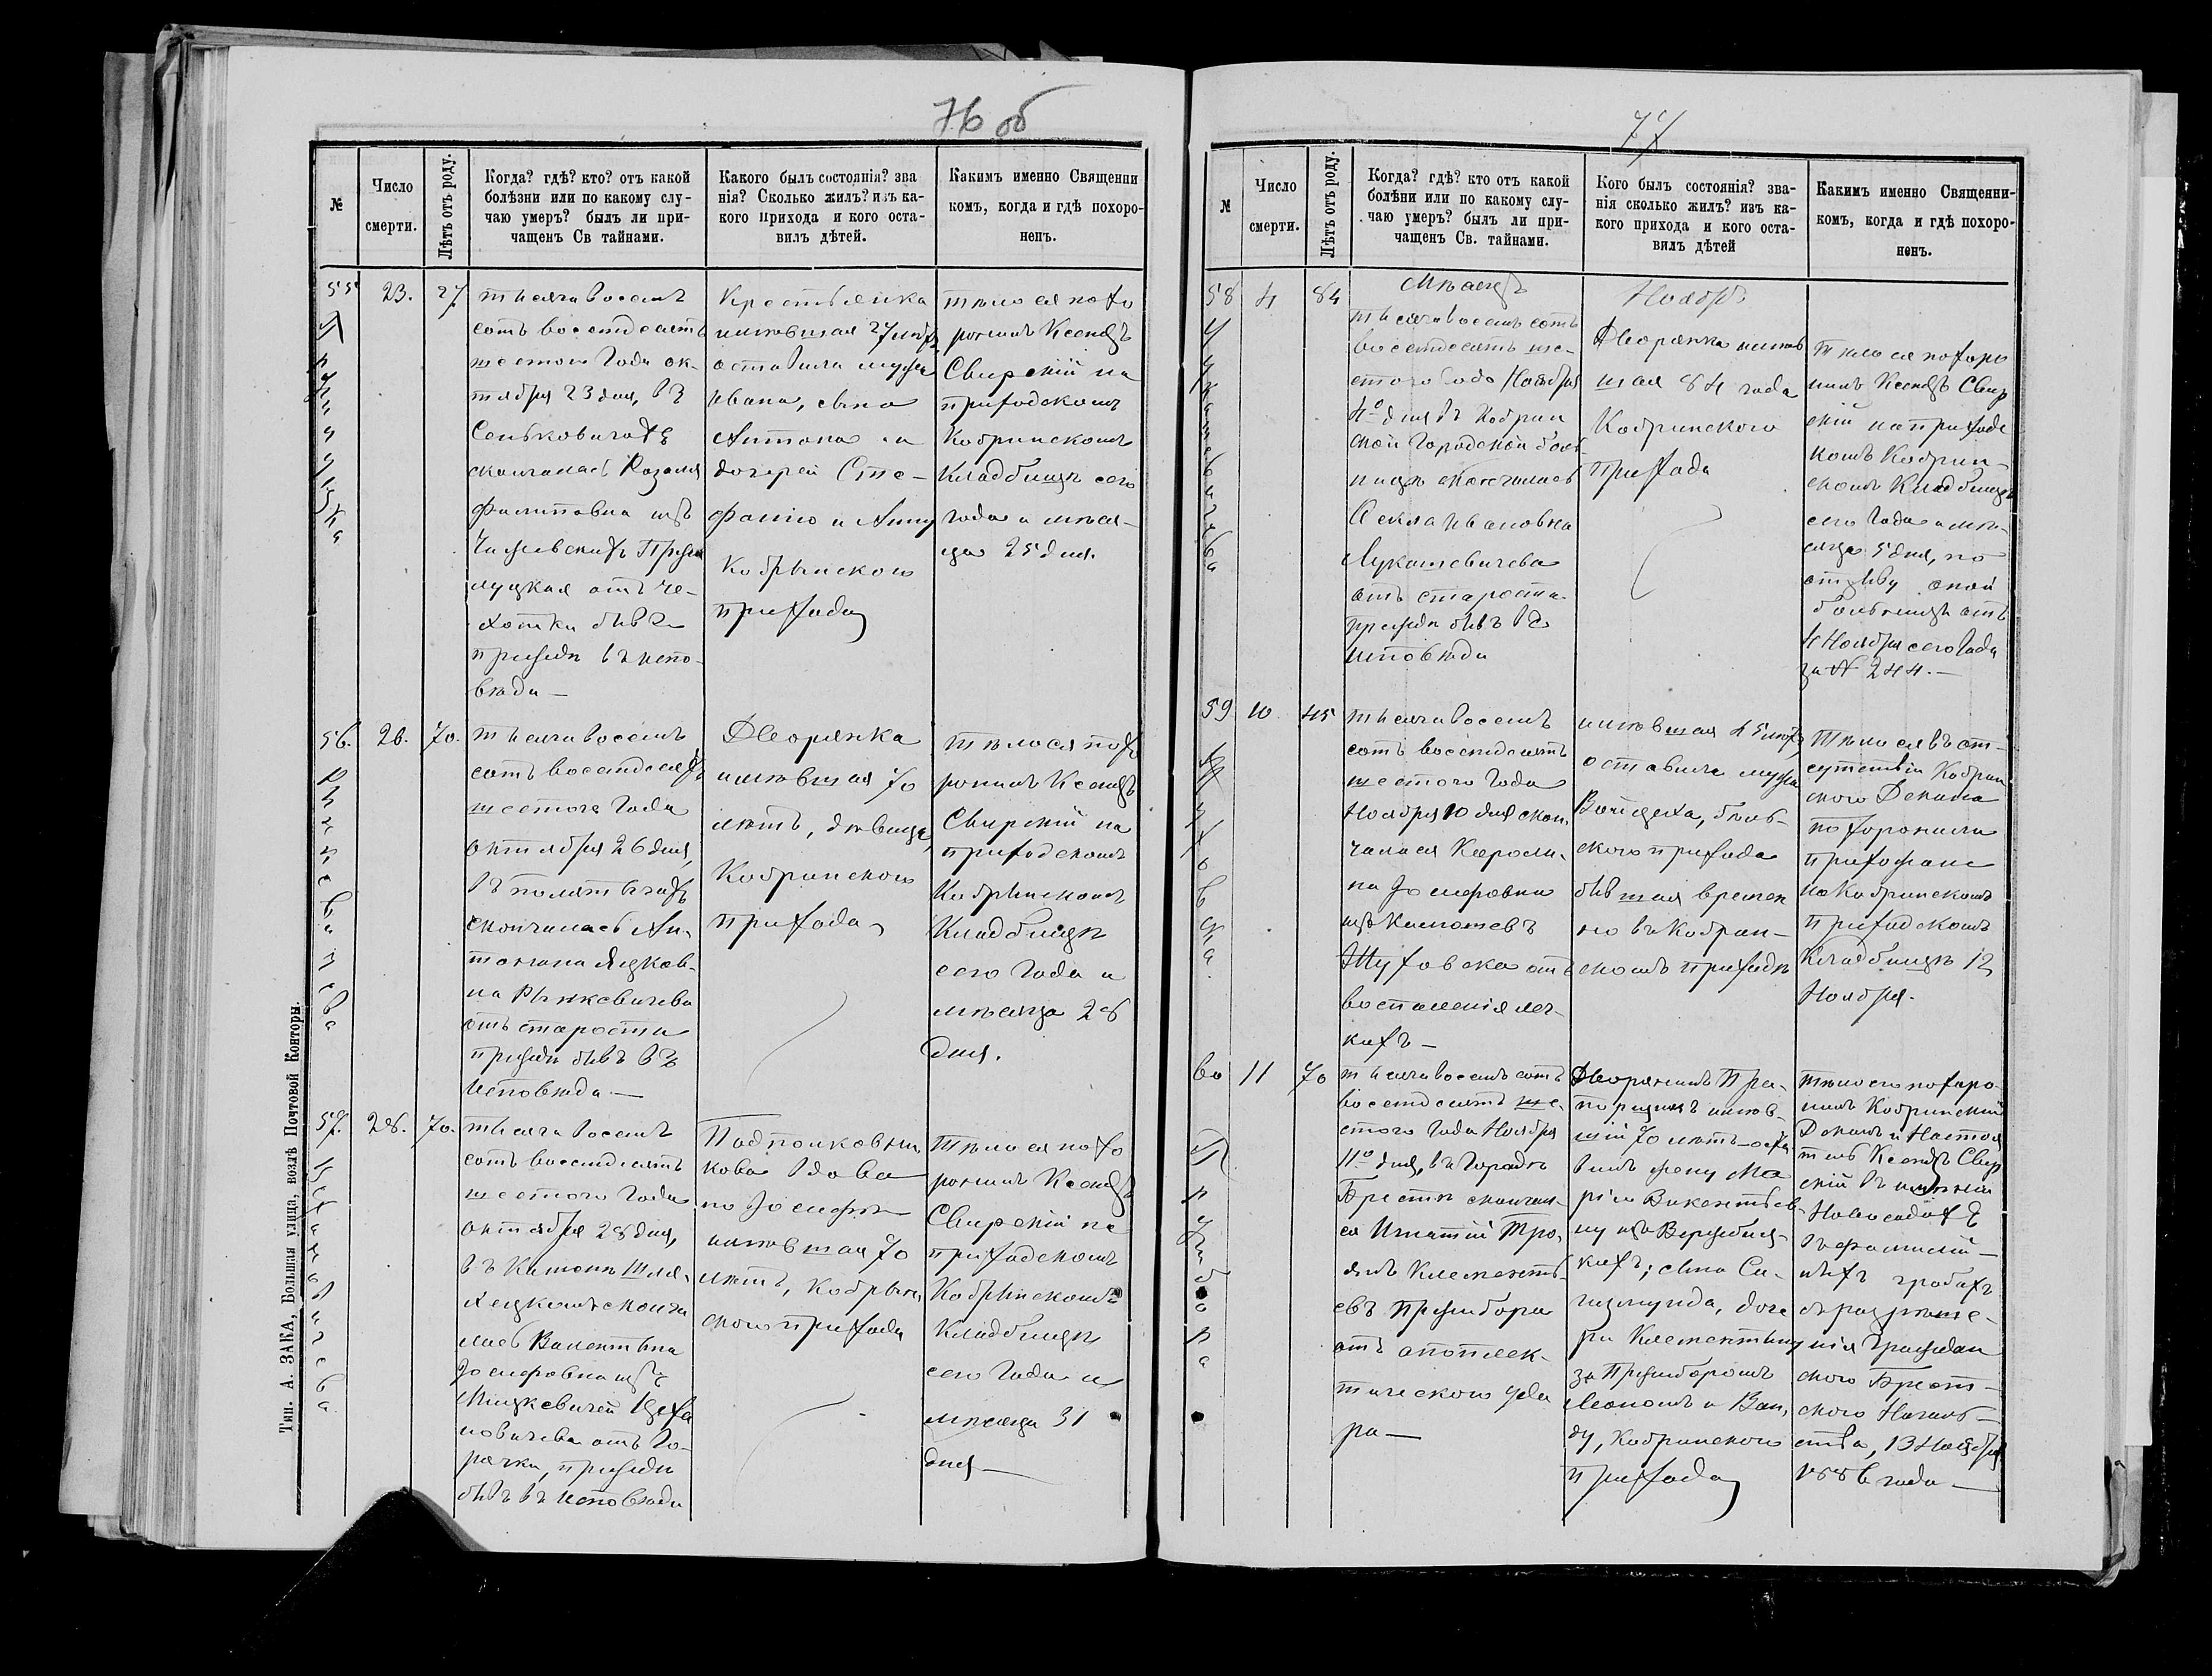 76 об
№
Число
смерти.
Лѣтъ отъ роду.
Когда? гдѣ? кто? отъ какой
болѣзни или по какому слу-
чаю умеръ? былъ ли при-
чащенъ Св тайнами.
Какого былъ состоянія? зва
нія? Сколько жилъ? изъ ка-
кого прихода и кого оста-
вилъ дѣтей.
Какимъ именно Священни
комъ, когда и гдѣ похоро-
ненъ.
55
23.
27
тысяча восемь
сотъ восемдесятъ
шестого Года ок-
тября 23 дня, въ
Сеньковичахъ
скончалась Розалія
изъ
отъ ча-
хотки бывъ
прежде въ испо-
вѣди —
Крестьянка
имѣвшая 27 лѣтъ
оставила мужа
Ивана, сына
Антона и
дочерей Сте-
фанію и Анну
Кобрынского
прихода
тѣло ея похо
ронилъ Ксендзъ
Свирскій на
приходскомъ
Кобринскомъ
Кладбищѣ сего
Года и мѣся-
ца 25 дня.
56.
26.
70.
Рынкевичева
тысяча восемь
сотъ восемдесятъ
шестого Года
октября 26 дня,
въ
скончалась Ан-
тонина Яцков-
на Рынкевичева
отъ старости
прежде бывъ въ
исповѣди —
Дворянка
имѣвшая 70
лѣтъ, дѣвица,
Кобринского
прихода
тѣло ея похо
ронилъ Ксендзъ
Свирскій на
приходскомъ
Кобрынскомъ
Кладбищѣ
сего Года и
мѣсяца 28
дня.
57.
28.
70.
Цехановичева
тысяча восемь
сотъ восемдесятъ
шестого Года
октября 28 дня,
въ Шля-
хецкомъ сконча
лась Валентына
Іосифовна изъ
Мицкевичей Цеха
новичева отъ Го-
рячки, прежде
бывъ въ исповѣди
Подполковни
кова вдова
по Іосифѣ
имѣвшая 70
лѣтъ, Кобрын
ского прихода
Тѣло ея похо
ронилъ Ксендзъ
Свирскій на
приходскомъ
Кобрынскомъ
Кладбищѣ
сего Года и
мѣсяца 31
дня —
Тип. А. ЗАКА, Большая улица, возлѣ Почтовой Конторы.
77
№
Число
смерти.
Лѣтъ отъ роду.
Когда? гдѣ? кто отъ какой
болѣни или по какому слу-
чаю умеръ? былъ ли при-
чащенъ Св. тайнами.
Кого былъ состоянія? зва-
нія сколько жилъ? изъ ка-
кого прихода и кого оста-
вилъ дѣтей
Какимъ именно Священни-
комъ, когда и гдѣ похоро-
ненъ.
Мѣсяцъ
Ноябрь
58
4
84
Лукашевичева
тысяча восемь сотъ
восемдесятъ ше-
стого Года Ноября
4º дня въ Кобрин
ской Городской боль-
ницѣ скончалась
Текля Ивановна
Лукашевичева
отъ старости
прежде бывъ въ
исповѣди
Дворянка имѣв
шая 84 года
Кобринского
прихода
Тѣло ея похоро
нилъ Ксендзъ Свир
скій на приход
комъ Кобрин-
скомъ Кладбищѣ
сего Года и мѣ-
сяца 5 дня, по
отзыву оной
больницы отъ
4 Ноября сего Года
за № 244. —
59
10
45
Жуховска.
тысяча восемь
сотъ восемдесятъ
шестого Года
Ноября 10 дня скон-
чалася Кароли-
на Іосифовна
изъ
Жуховска отъ
воспаленія лег-
кихъ —
имѣвшая 45 лѣтъ
оставила мужа
Войцеха,
ского прихода
бывшая времен
но въ Кобрин-
скомъ приходѣ
Тѣло ея въ от-
сутствіи Кобрин
ского Декана
похоронили
прихожане
на Кобринскомъ
приходскомъ
Кладбищѣ 12
Ноября.
60
11
70
Пржибора
тысяча восемь сотъ
восемдесятъ ше-
стого Года Ноября
11º дня, въ Городѣ
Брестѣ скончал-
ся Игнатій Тро-
янъ Клементь-
евъ Пржибора
отъ апоплек-
тического уда
ра —
Дворянинъ Пра-
порщикъ имѣв-
шій 70 лѣтъ - оста
вилъ жену Ма
рію Викентьев-
ну изъ Вержбиц-
кихъ; сына Си-
гизмунда, доче
ри Клементину
за Пржиборомъ
Леономъ и Ван-
ду, Кобринского
прихода
тѣло его похоро
нилъ Кобринскій
Деканъ и Настоя
тель Ксендзъ Свир
скій въ имѣніи
Новосадахъ
въ фамилій-
ныхъ гробахъ
съ разрѣше-
нія Граждан
ского Брест-
ского Началь-
ства, 13 Ноября
1886 года —